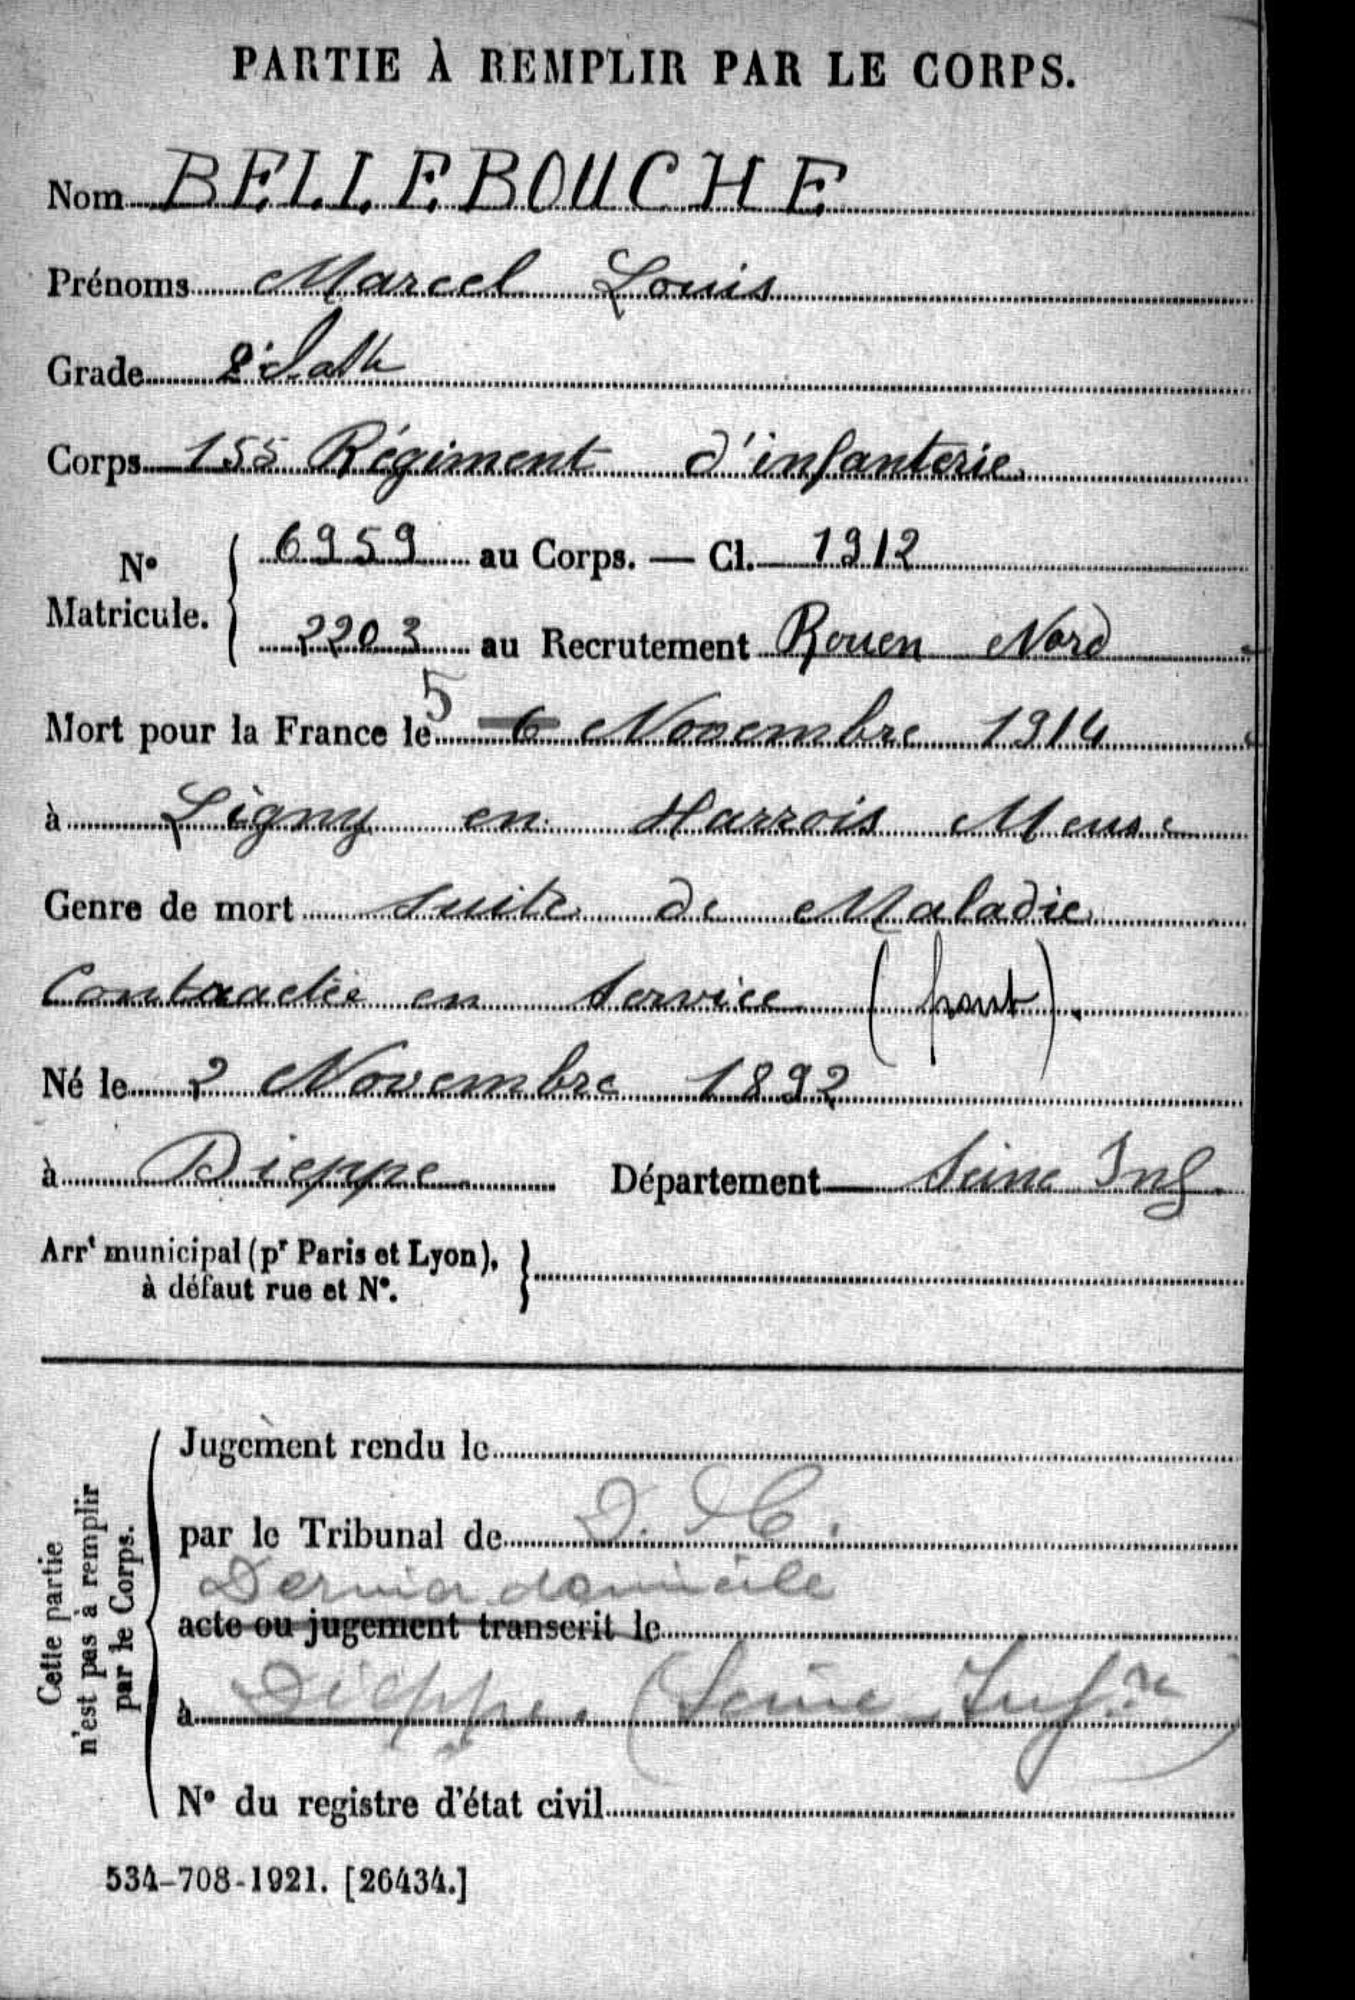 PARTIE À REMPLIR PAR LE CORPS.
Nom BELLEBOUCHE
Prénoms Marcel Louis
Grade 2e
Corps 155 Régiment d'infanterie
N° Matricule. 6959 au Corps. — Cl. 1912
2203 au Recrutement Rouen Nord
Mort pour la France le 5 6 Novembre 1914
à Ligny en Harrois Meuse
Genre de mort suite de Maladie
Contractée en Service (front).
Né le 2 Novembre 1892
à Dieppe Département Seine Inf.
Arrt municipal (pr Paris et Lyon),
à défaut rue et N°.
Cette partie
n'est pas à remplir
par le Corps.
Jugement rendu le
par le Tribunal de D. C.
Dernier domicile
acte ou jugement transcrit le
à Dieppe (Seine-Infre)
N° du registre d'état civil
534-708-1921. [26434.]